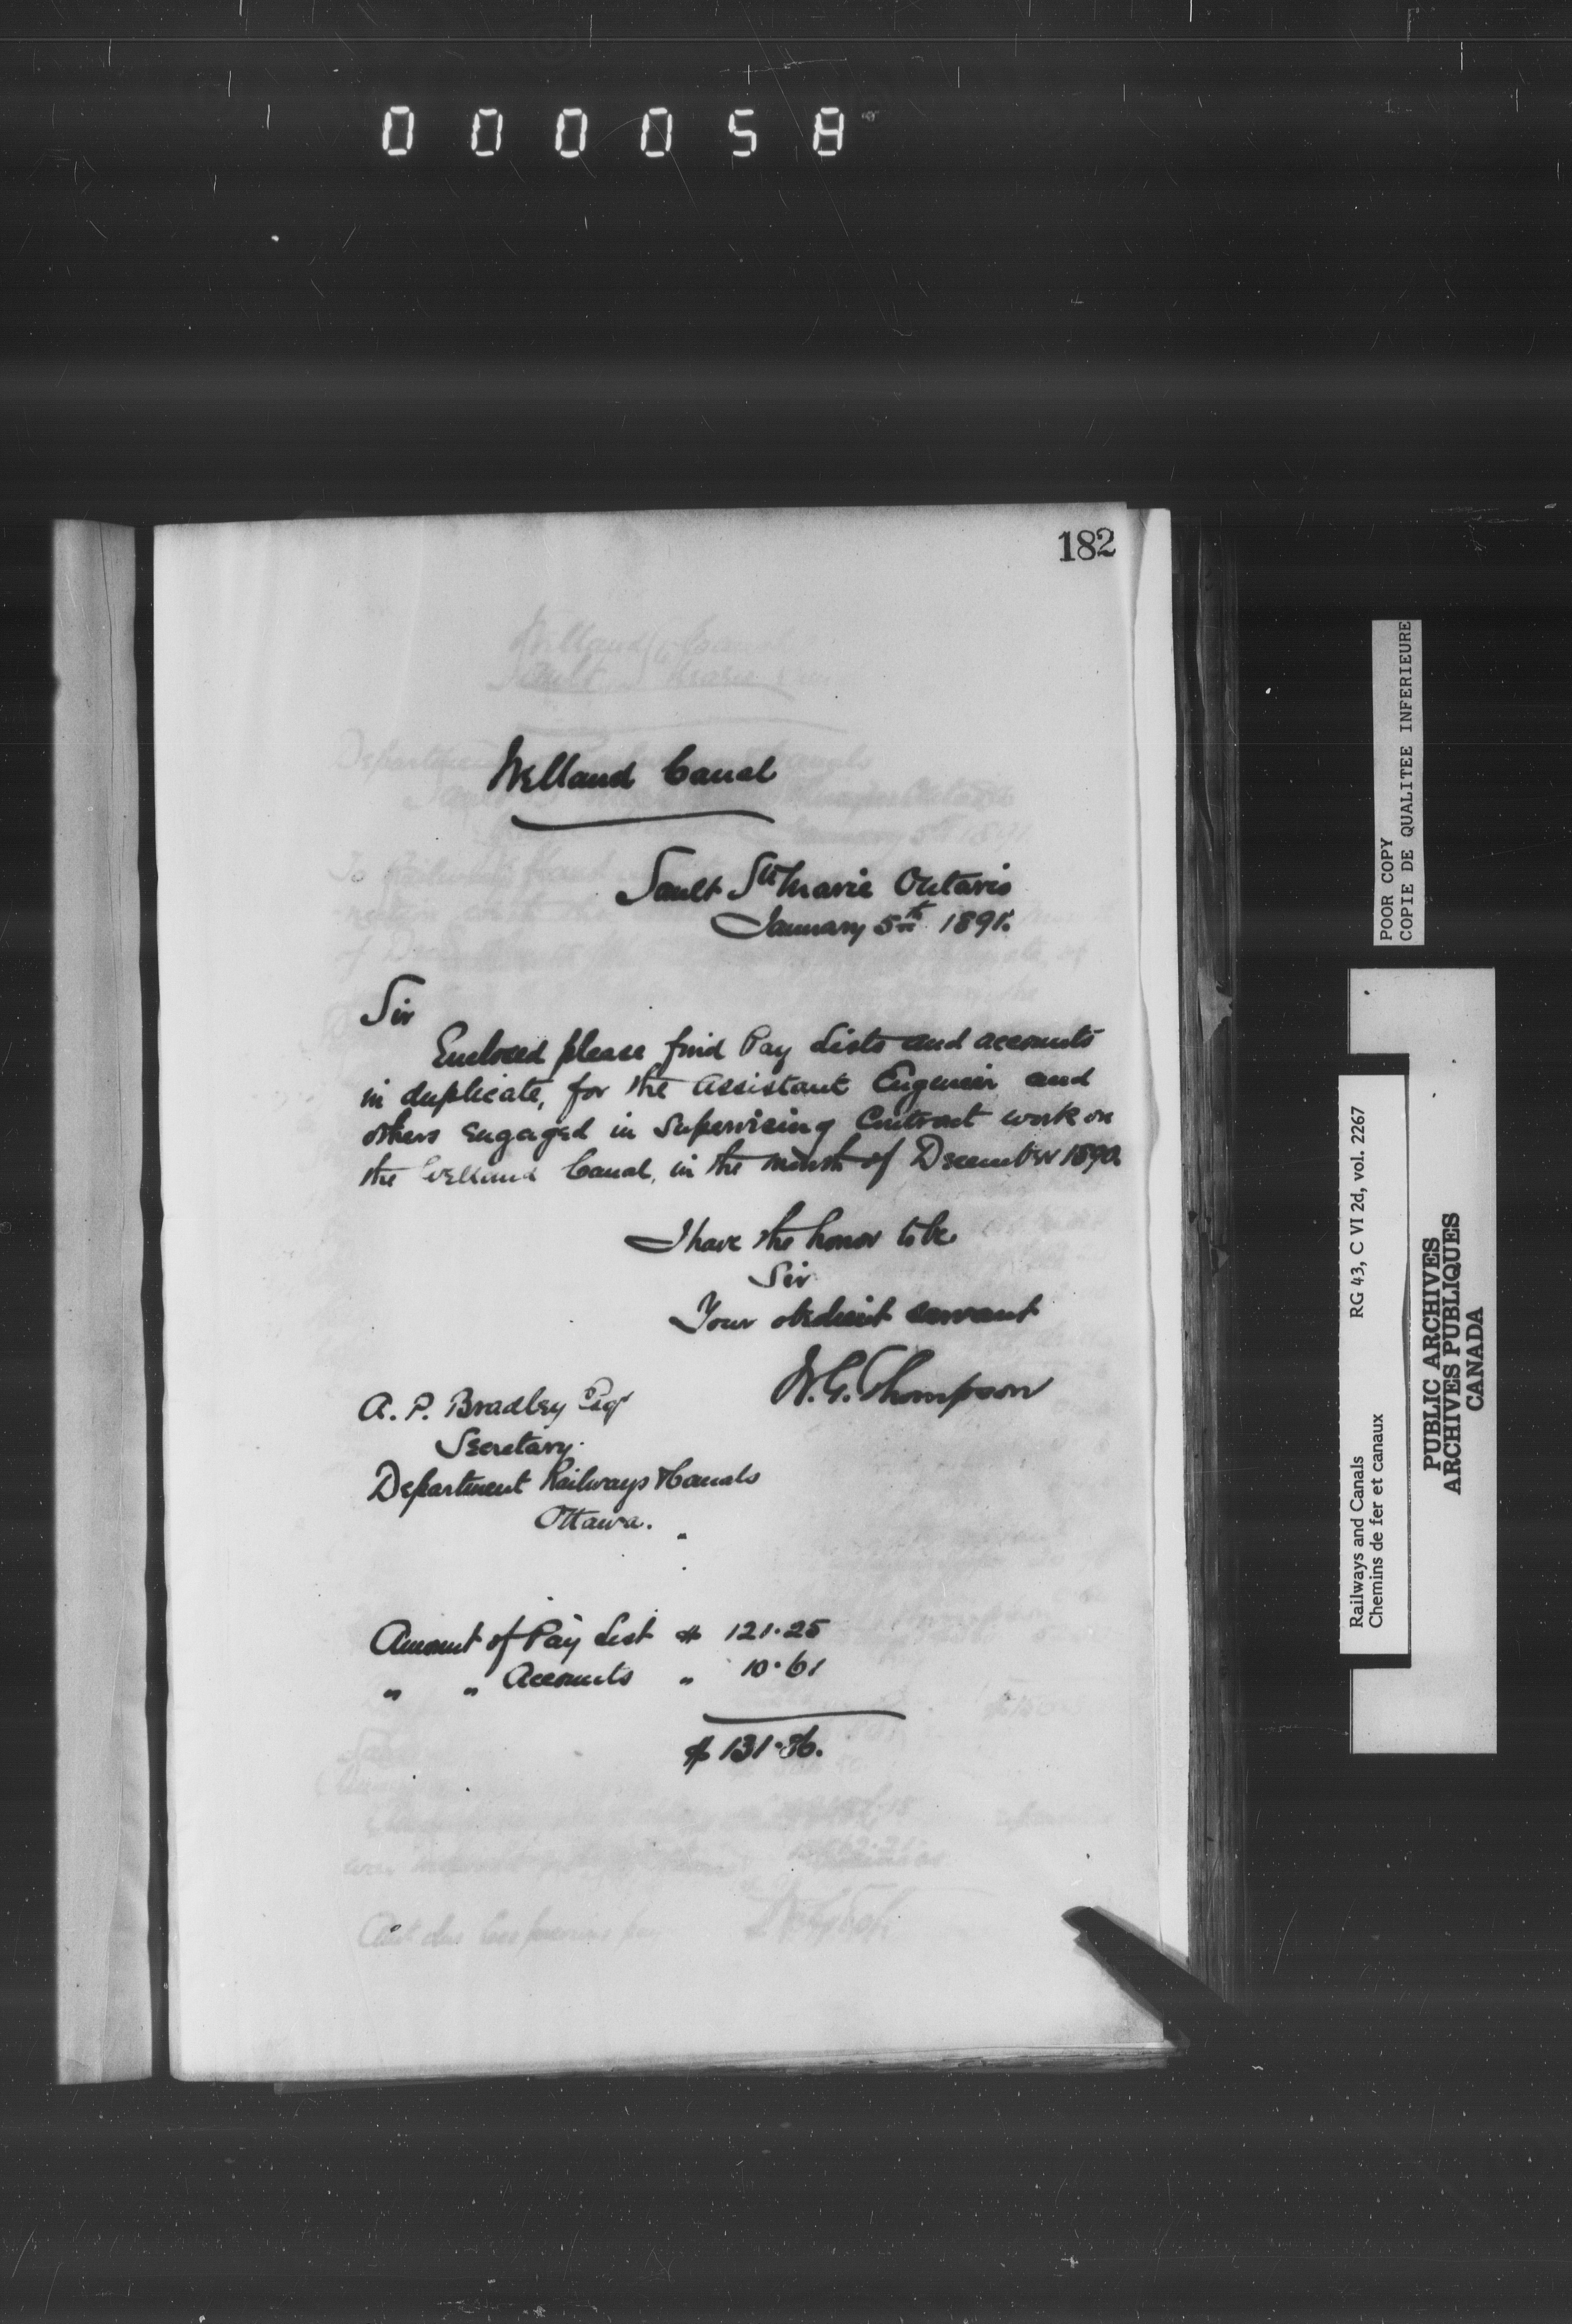 000058
182
Welland Canal
Sault Ste Marie Ontario
January 5th 1891.
Sir
Enclosed please find Pay Lists and accounts
in duplicate, for the Assistant Engineer and
others engaged in Supervising Contract work on
the Welland Canal, in the month of December 1890.
I have the honor to be
Sir
Your obedient servant
W. G. Thompson
A. P. Bradley Esqr
Secretary.
Department Railways & Canals
Ottawa.
Amount of Pay List $ 121.25
" " Accounts " 10.61
$ 131.86.
POOR COPY
COPIE DE QUALITEE INFERIEURE
Railways and Canals RG 43, C VI 2d, vol. 2267
Chemins de fer et canaux
PUBLIC ARCHIVES
ARCHIVES PUBLIQUES
CANADA